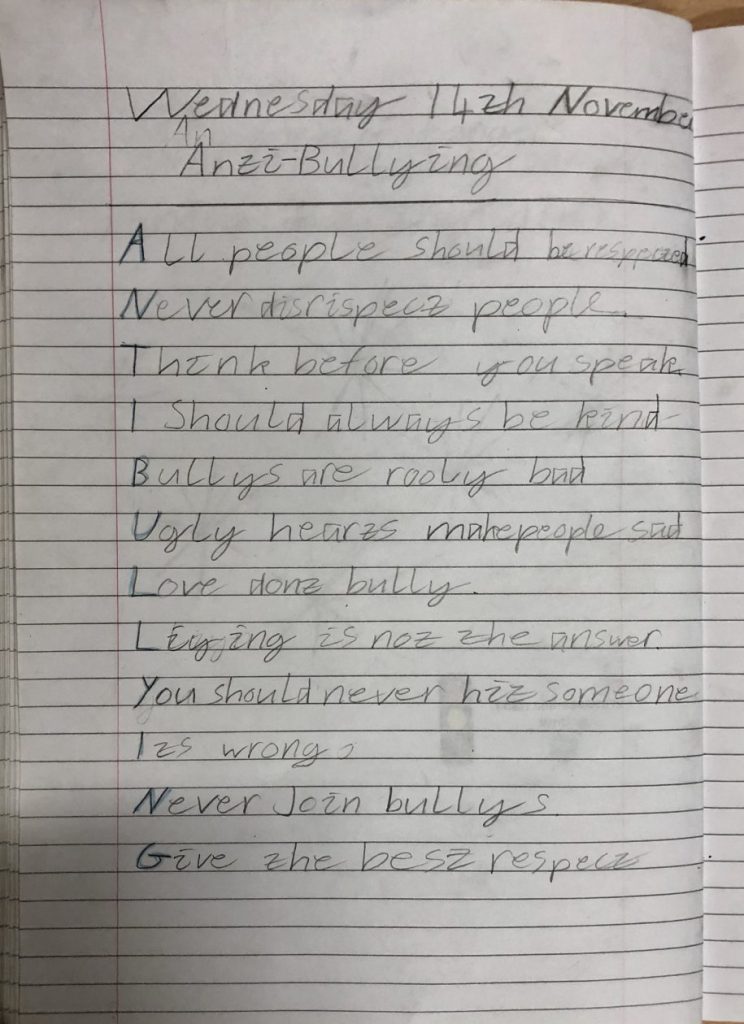 Wednesday 14th November
An
Anti-Bullying
All people should be respected
Never disrispect people.
Think before you speak
I Should always be kind
Bullys are rooly bad
Ugly hearts make people sad
Love dont bully.
Liying is not the answer.
You should never hit someone
Its wrong
Never Join bullys
Give the best respect